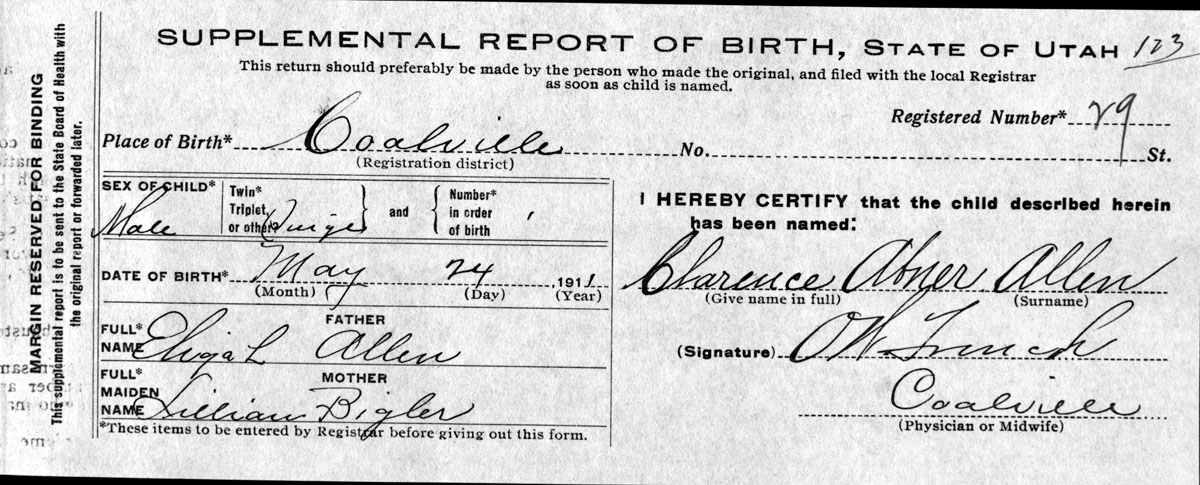 SUPPLEMENTAL REPORT OF BIRTH, STATE OF UTAH 123
This return should preferably be made by the person who made the original, and filed with the local Registrar
as soon as child is named.
Registered Number* 29
Place of Birth* Coalville No. St.
(Registration district)
SEX OF CHILD* Male
Twin* Triplet, or other?
and
Number* in order of birth
DATE OF BIRTH* May 24, 1911
(Month) (Day) (Year)
FATHER
FULL* NAME Elija L Allen
MOTHER
FULL* MAIDEN NAME Lillian Bigler
*These items to be entered by Registrar before giving out this form.
I HEREBY CERTIFY that the child described herein
has been named:
Clarence Abner Allen
(Give name in full) (Surname)
(Signature) O W French
Coalville
(Physician or Midwife)
MARGIN RESERVED FOR BINDING
This supplemental report is to be sent to the State Board of Health with
the original report or forwarded later.